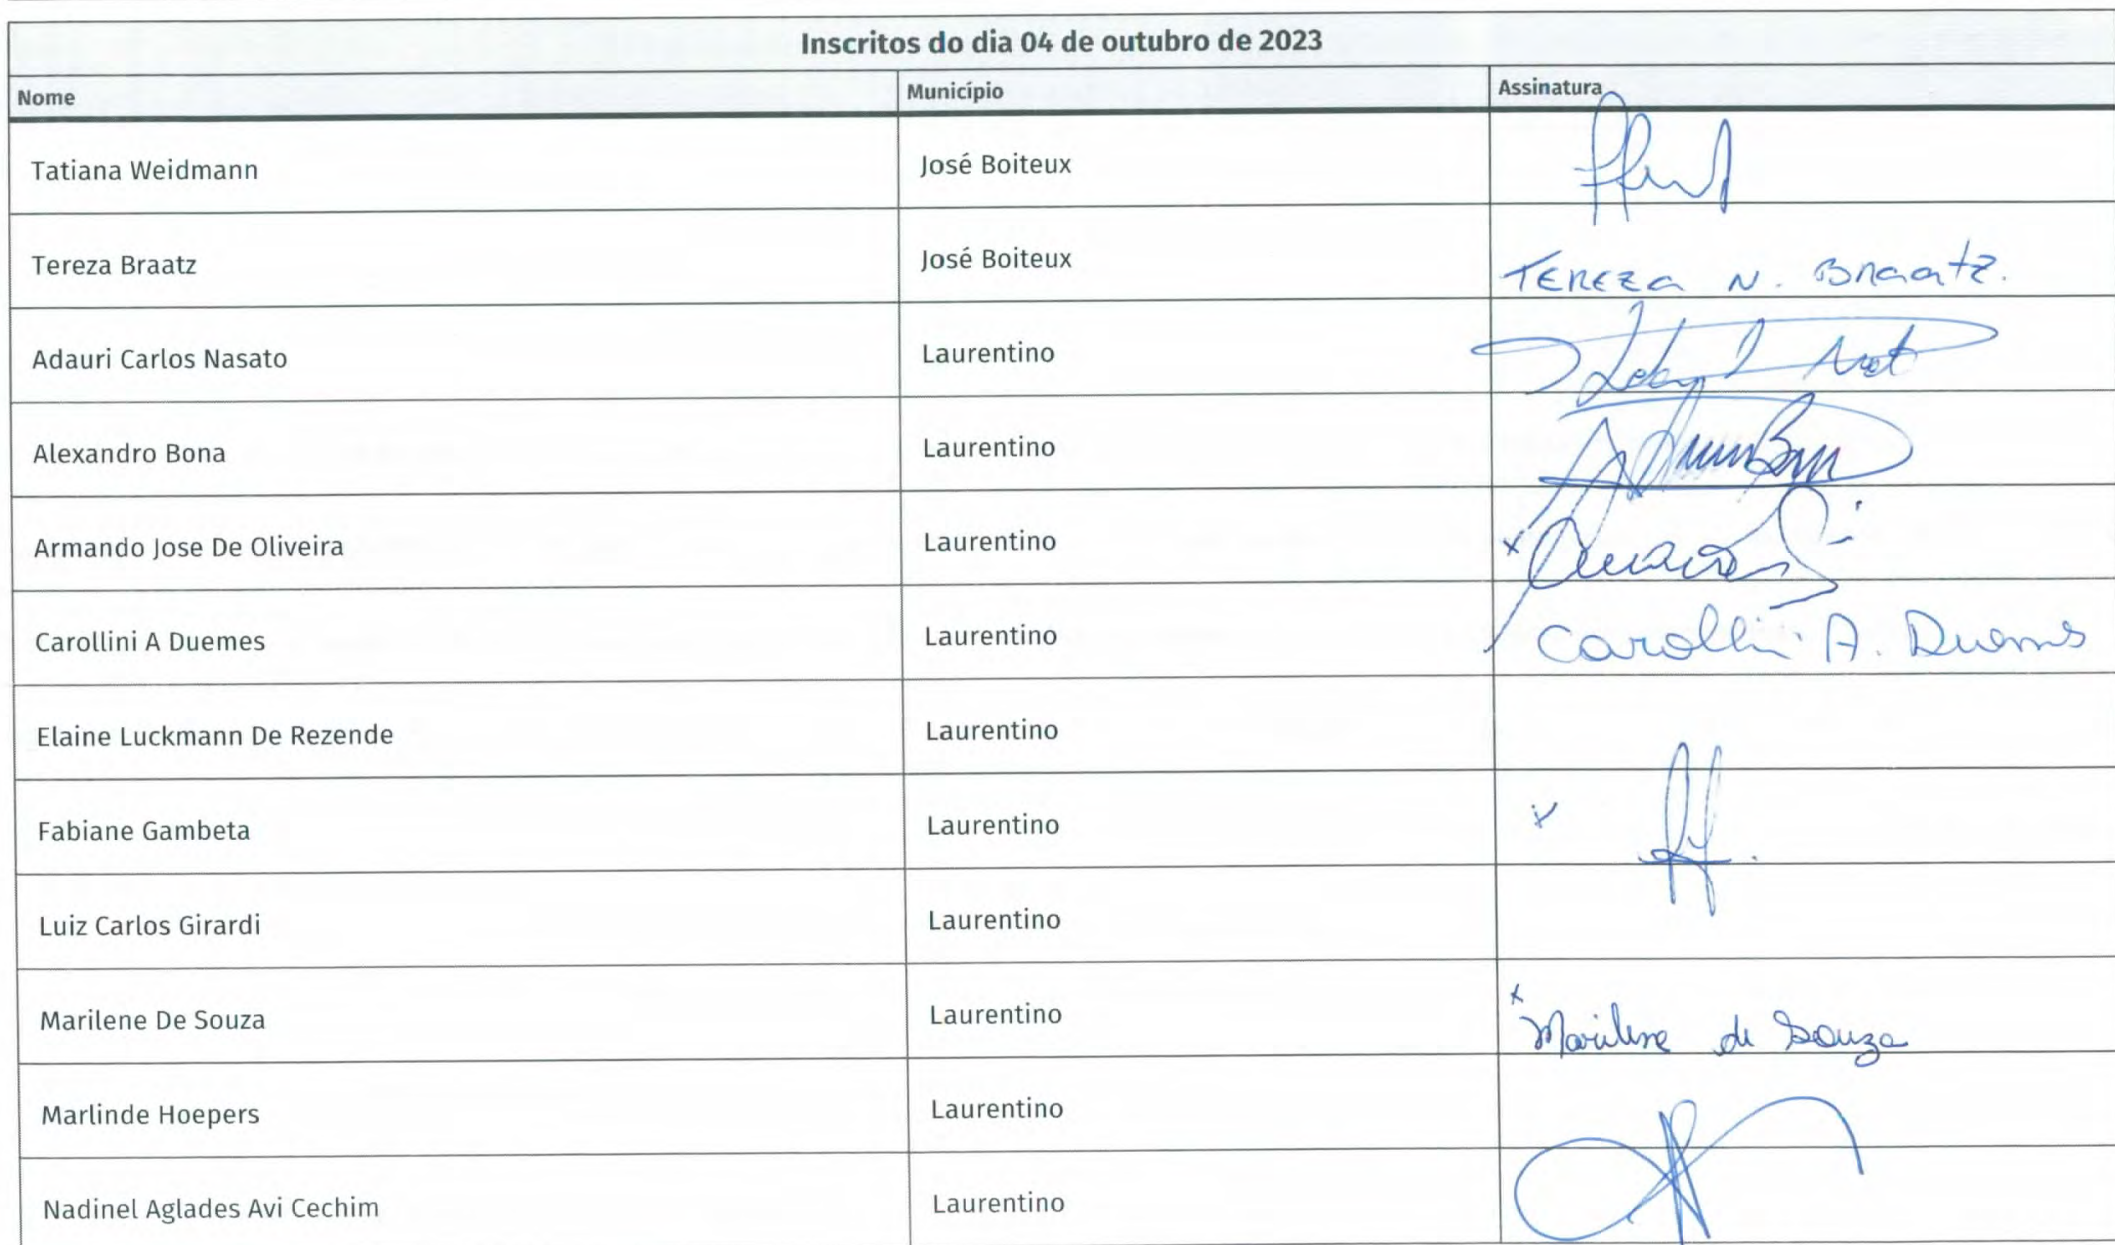 Inscritos do dia 04 de outubro de 2023
Nome Município Assinatura
Tatiana Weidmann José Boiteux
Tereza Braatz José Boiteux TEREZA N. Braatz.
Adauri Carlos Nasato Laurentino
Alexandro Bona Laurentino
Armando Jose De Oliveira Laurentino x
Carollini A Duemes Laurentino Carollini A. Duemes
Elaine Luckmann De Rezende Laurentino
Fabiane Gambeta Laurentino x
Luiz Carlos Girardi Laurentino
Marilene De Souza Laurentino x Marilene de Souza
Marlinde Hoepers Laurentino
Nadinel Aglades Avi Cechim Laurentino